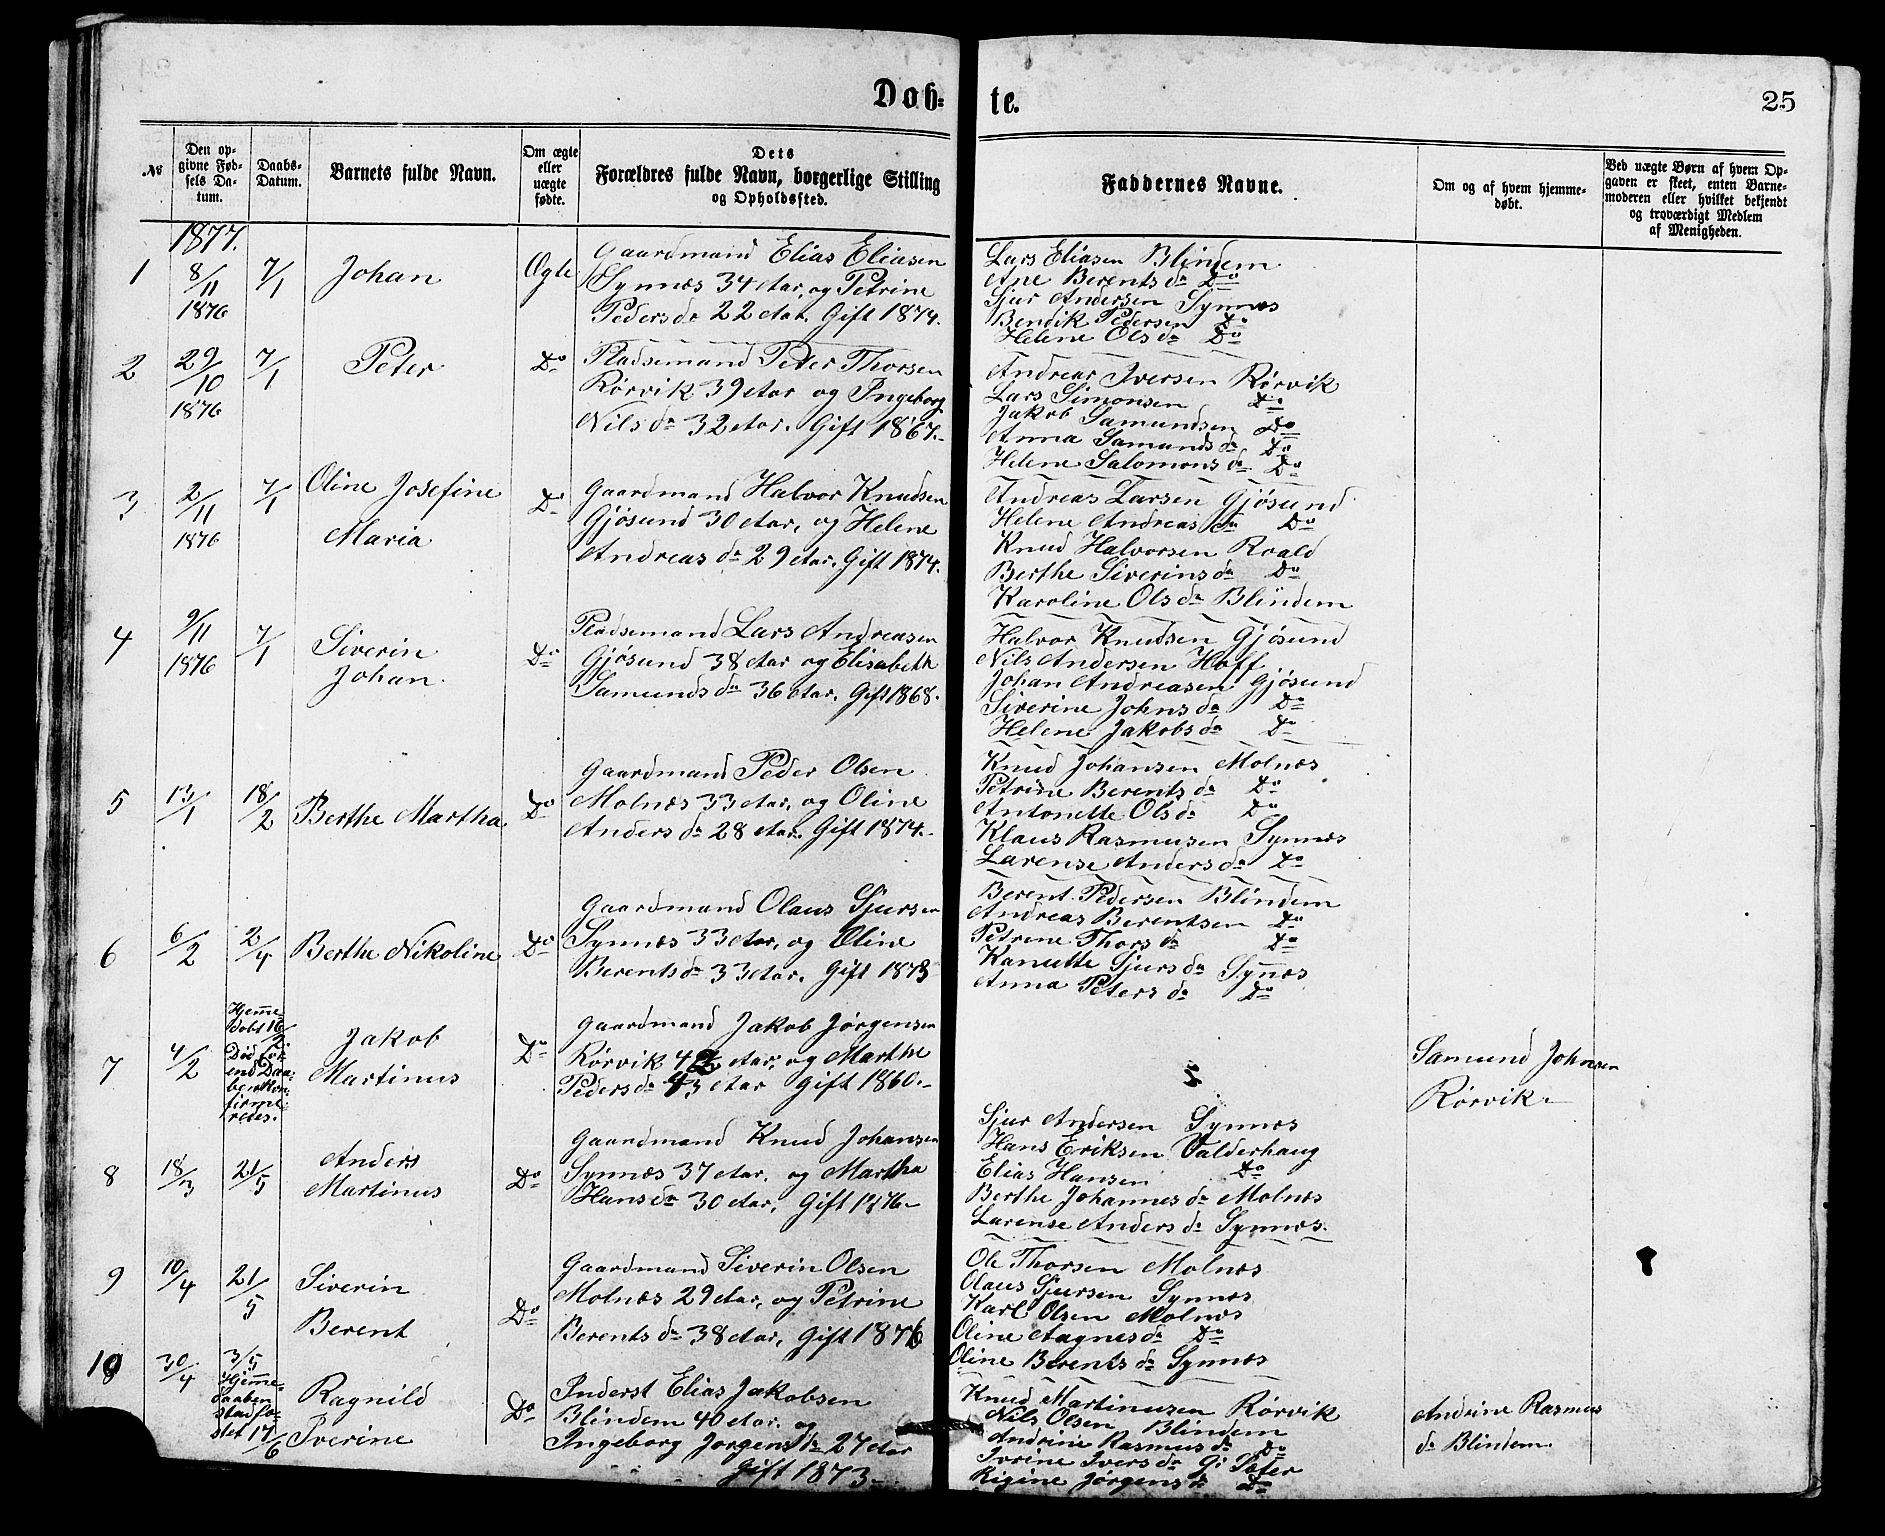 Døb-
te.
25
№
Den op-
givne Fød-
sels Da-
tum.
Daabs-
Datum.
Barnets fulde Navn.
Om ægte
eller
uægte
fødte.
Dets
Forældres fulde Navn, borgerlige Stilling
og Opholdssted.
Faddernes Navne.
Om og af hvem hjemme-
døbt.
Ved uægte Børn af hvem Op-
gaven er skeet, enten Barne-
moderen eller hvilket bekjendt
og troværdigt Medlem
af Menigheden.
1877.
1
8/11
1876
7/1
Johan
Ægte
Gaardmand Elias Eliasen
Synnæs 34 Aar, og Petrine
Pedersdr 22 Aar. Gift 1874.
Lars Eliasen Blindem
Ane Berentsdr Do
Sjur Andersen Synnæs
Bendik Pedersen Do
Helene Olsdr Do
2
29/10
1876
7/1
Peter
Do
Pladsemand Peter Thorsen
Rørvik 39 Aar og Ingeborg
Nilsdr 32 Aar. Gift 1867.
Andreas Iversen Rørvik
Lars Simonsen Do
Jakob Samundsen Do
Anna Samundsdr Do
Helene Salomonsdr Do
3
2/11
1876
7/1
Oline Josefine
Maria
Do
Gaardmand Halvor Knudsen
Gjøsund 30 Aar, og Helene
Andreasdr 29 Aar. Gift 1874.
Andreas Larsen Gjøsund
Helene Andreasdr Do
Knud Halvorsen Roald
Berthe Siverinsdr Do
Karoline Olsdr Blindem
4
9/11
1876
7/1
Siverin
Johan
Do
Pladsemand Lars Andreasen
Gjøsund 38 Aar og Elisabeth
Samundsdr 36 Aar. Gift 1868.
Halvor Knudsen Gjøsund
Nils Andersen Hoff
Johan Andreasen Gjøsund
Siverine Johnsdr Do
Helene Jakobsdr Do
5
13/1
18/2
Berthe Martha
Do
Gaardmand Peder Olsen
Molnæs 33 Aar, og Oline
Andersdr 28 Aar. Gift 1874.
Knud Johansen Molnæs
Petrine Berentsdr Do
Antonette Olsdr Do
Klaus Rasmusen Synnæs
Larense Andersdr Do
6
6/2
2/4
Berthe Nikoline
Do
Gaardmand Olaus Sjursen
Synnæs 33 Aar, og Oline
Berentsdr 33 Aar. Gift 1873
Berent Pedersen Blindem
Andreas Berentsen Do
Petrine Thorsdr Do
Kanutte Sjursdr Synæs
Anna Petersdr Do
7
4/2
Hjemme-
døbt 16/2.
Død før-
end Daa-
ben kon-
firme-
redes.
Jakob
Martinus
Do
Gaardmand Jakob Jørgensen
Rørvik 42 Aar, og Marthe
Pedersdr 43 Aar Gift 1860.
Samund Johnsen
Rørvik
8
18/3
21/5
Anders
Martinus
Do
Gaardmand Knud Johansen
Synnæs 37 Aar. og Martha
Hansdr 30 Aar, Gift 1876
Sjur Andersen Synnæs
Hans Eriksen Valderhaug
Elias Hansen Do
Berthe Johannesdr Molnæs
Larense Andersdr Synnæs.
9
10/4
21/5
Siverin
Berent
Do
Gaardmand Siverin Olsen
Molnæs 29 Aar, og Petrine
Berentsdr 38 Aar, Gift 1876
Ole Thorsen Molnæs
Olaus Sjursen Synnæs
Karl Olsen Molnæs
Oline Aagnesdr Do
Oline Berentsdr Synnæs
10
30/4
3/5
Hjemme-
daaben
stadfæ-
stet 17/6
Ragnild
Iverine
Do
Inderst Elias Jakobsen
Blindem 40 Aar. og
Ingeborg Jørgensdr 27 Aar
Gift 1873
Knud Martinusen Rørvik
Nils Olsen Blindem
Andrine Rasmusdr Do
Ivrine Iversdr Gj: Sæter
Rigine Jørgensdr Do
Andrine Rasmus
dr Blindem